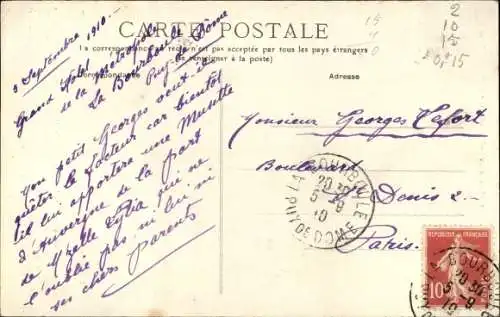 CARTE POSTALE
La correspondance au recto n'est pas acceptée par tous les pays étrangers
(Se renseigner à la poste)
Correspondance
Adresse
3 Septembre 1910
Grand Hôtel
de la Métropole
La Bourboule
Puy de Dôme
Mon petit Georges veut-il
guêter le facteur car bientôt
il lui apportera une Musette
d'Auvergne de la part
de Mzelle Lydia qui ne
l'oublie pas ni lui ni
ses chers parents
Monsieur Georges
Boulevard
Denis 2
Paris.
LA BOURBOULE
20 30
5 -9
10
PUY DE DOME
RÉPUBLIQUE FRANÇAISE
10
LA BOURBOULE
20 30
5 -9
10
15
40
2
10
15
15